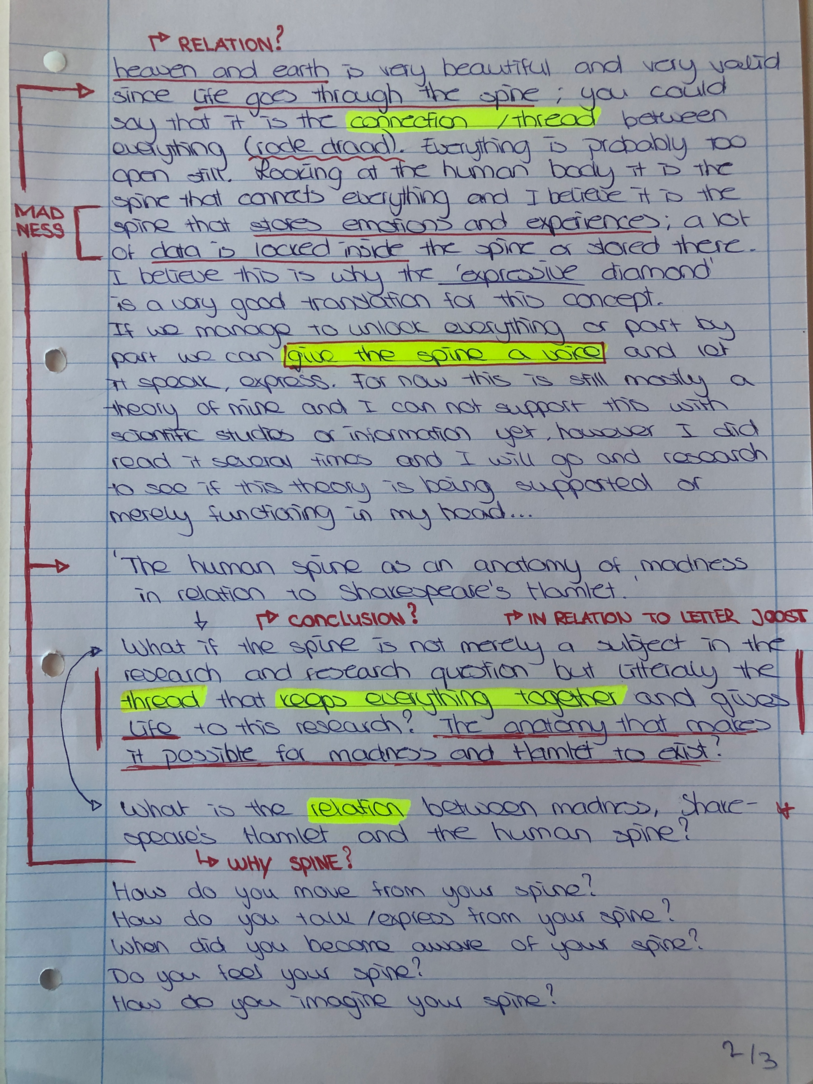 ↱ RELATION?
heaven and earth is very beautiful and very valid
since life goes through the spine; you could
say that it is the connection /thread between
everything (rode draad). Everything is probably too
open still. Looking at the human body it is the
spine that connects everything and I believe it is the
MAD
NESS
spine that stores emotions and experiences; a lot
of data is locked inside the spine or stored there.
I believe this is why the 'expressive diamond'
is a very good translation for this concept.
If we manage to unlock everything or part by
part we can give the spine a voice and let
it speak, express. For now this is still mostly a
theory of mine and I can not support this with
scientific studies or information yet, however I did
read it several times and I will go and research
to see if this theory is being supported or
merely functioning in my head...
'The human spine as an anatomy of madness
in relation to Shakespeare's Hamlet.'
↓ ↱ CONCLUSION? ↱ IN RELATION TO LETTER JOOST
What if the spine is not merely a subject in the
research and research question but litteraly the
thread that keeps everything together and gives
life to this research? The anatomy that makes
it possible for madness and Hamlet to exist?
What is the relation between madness, Shake-
speare's Hamlet and the human spine?
↳ WHY SPINE?
How do you move from your spine?
How do you talk /express from your spine?
When did you become aware of your spine?
Do you feel your spine?
How do you imagine your spine?
2/3